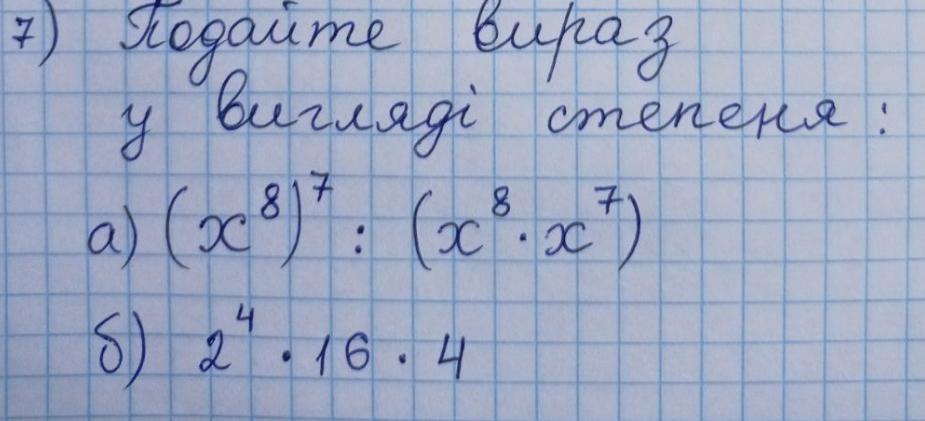 7) Подайте вираз
у вигляді степеня:
а) (x⁸)⁷ : (x⁸ · x⁷)
б) 2⁴ · 16 · 4